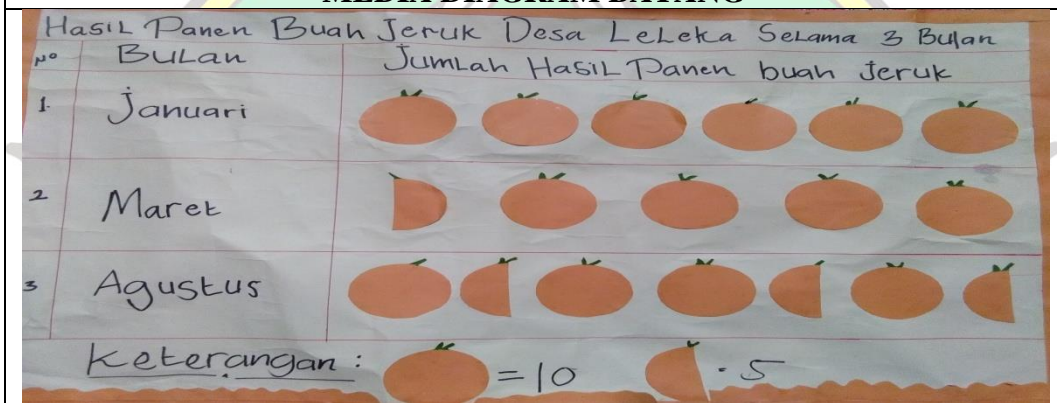 MEDIA DIAGRAM BATANG
Hasil Panen Buah Jeruk Desa Leleka Selama 3 Bulan
No Bulan Jumlah Hasil Panen buah Jeruk
1. Januari
2 Maret
3 Agustus
Keterangan : = 10 . 5